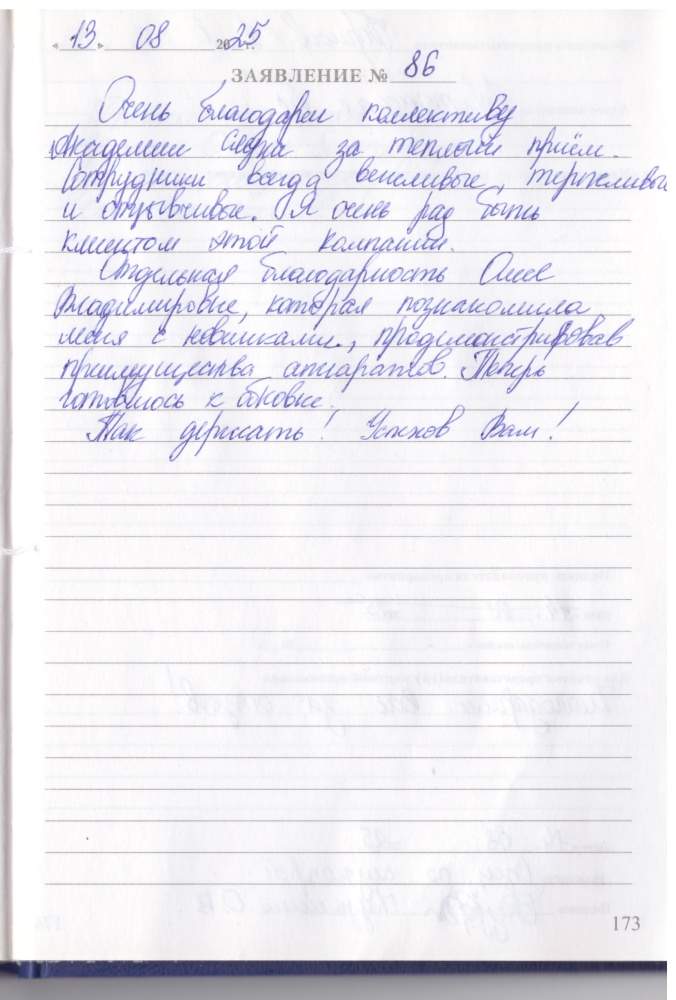 « 13 » 08 2025
ЗАЯВЛЕНИЕ № 86
Очень благодарен коллективу
Академии слуха за теплый приём.
Сотрудники всегда вежливые, терпеливые
и отзывчивые. Я очень рад быть
клиентом этой компании.
Отдельная благодарность Олесе
Владимировне, которая познакомила
меня с новинками, продемонстрировав
преимущества аппаратов. Теперь
готовлюсь к обновке.
Так держать! Успехов Вам!
173